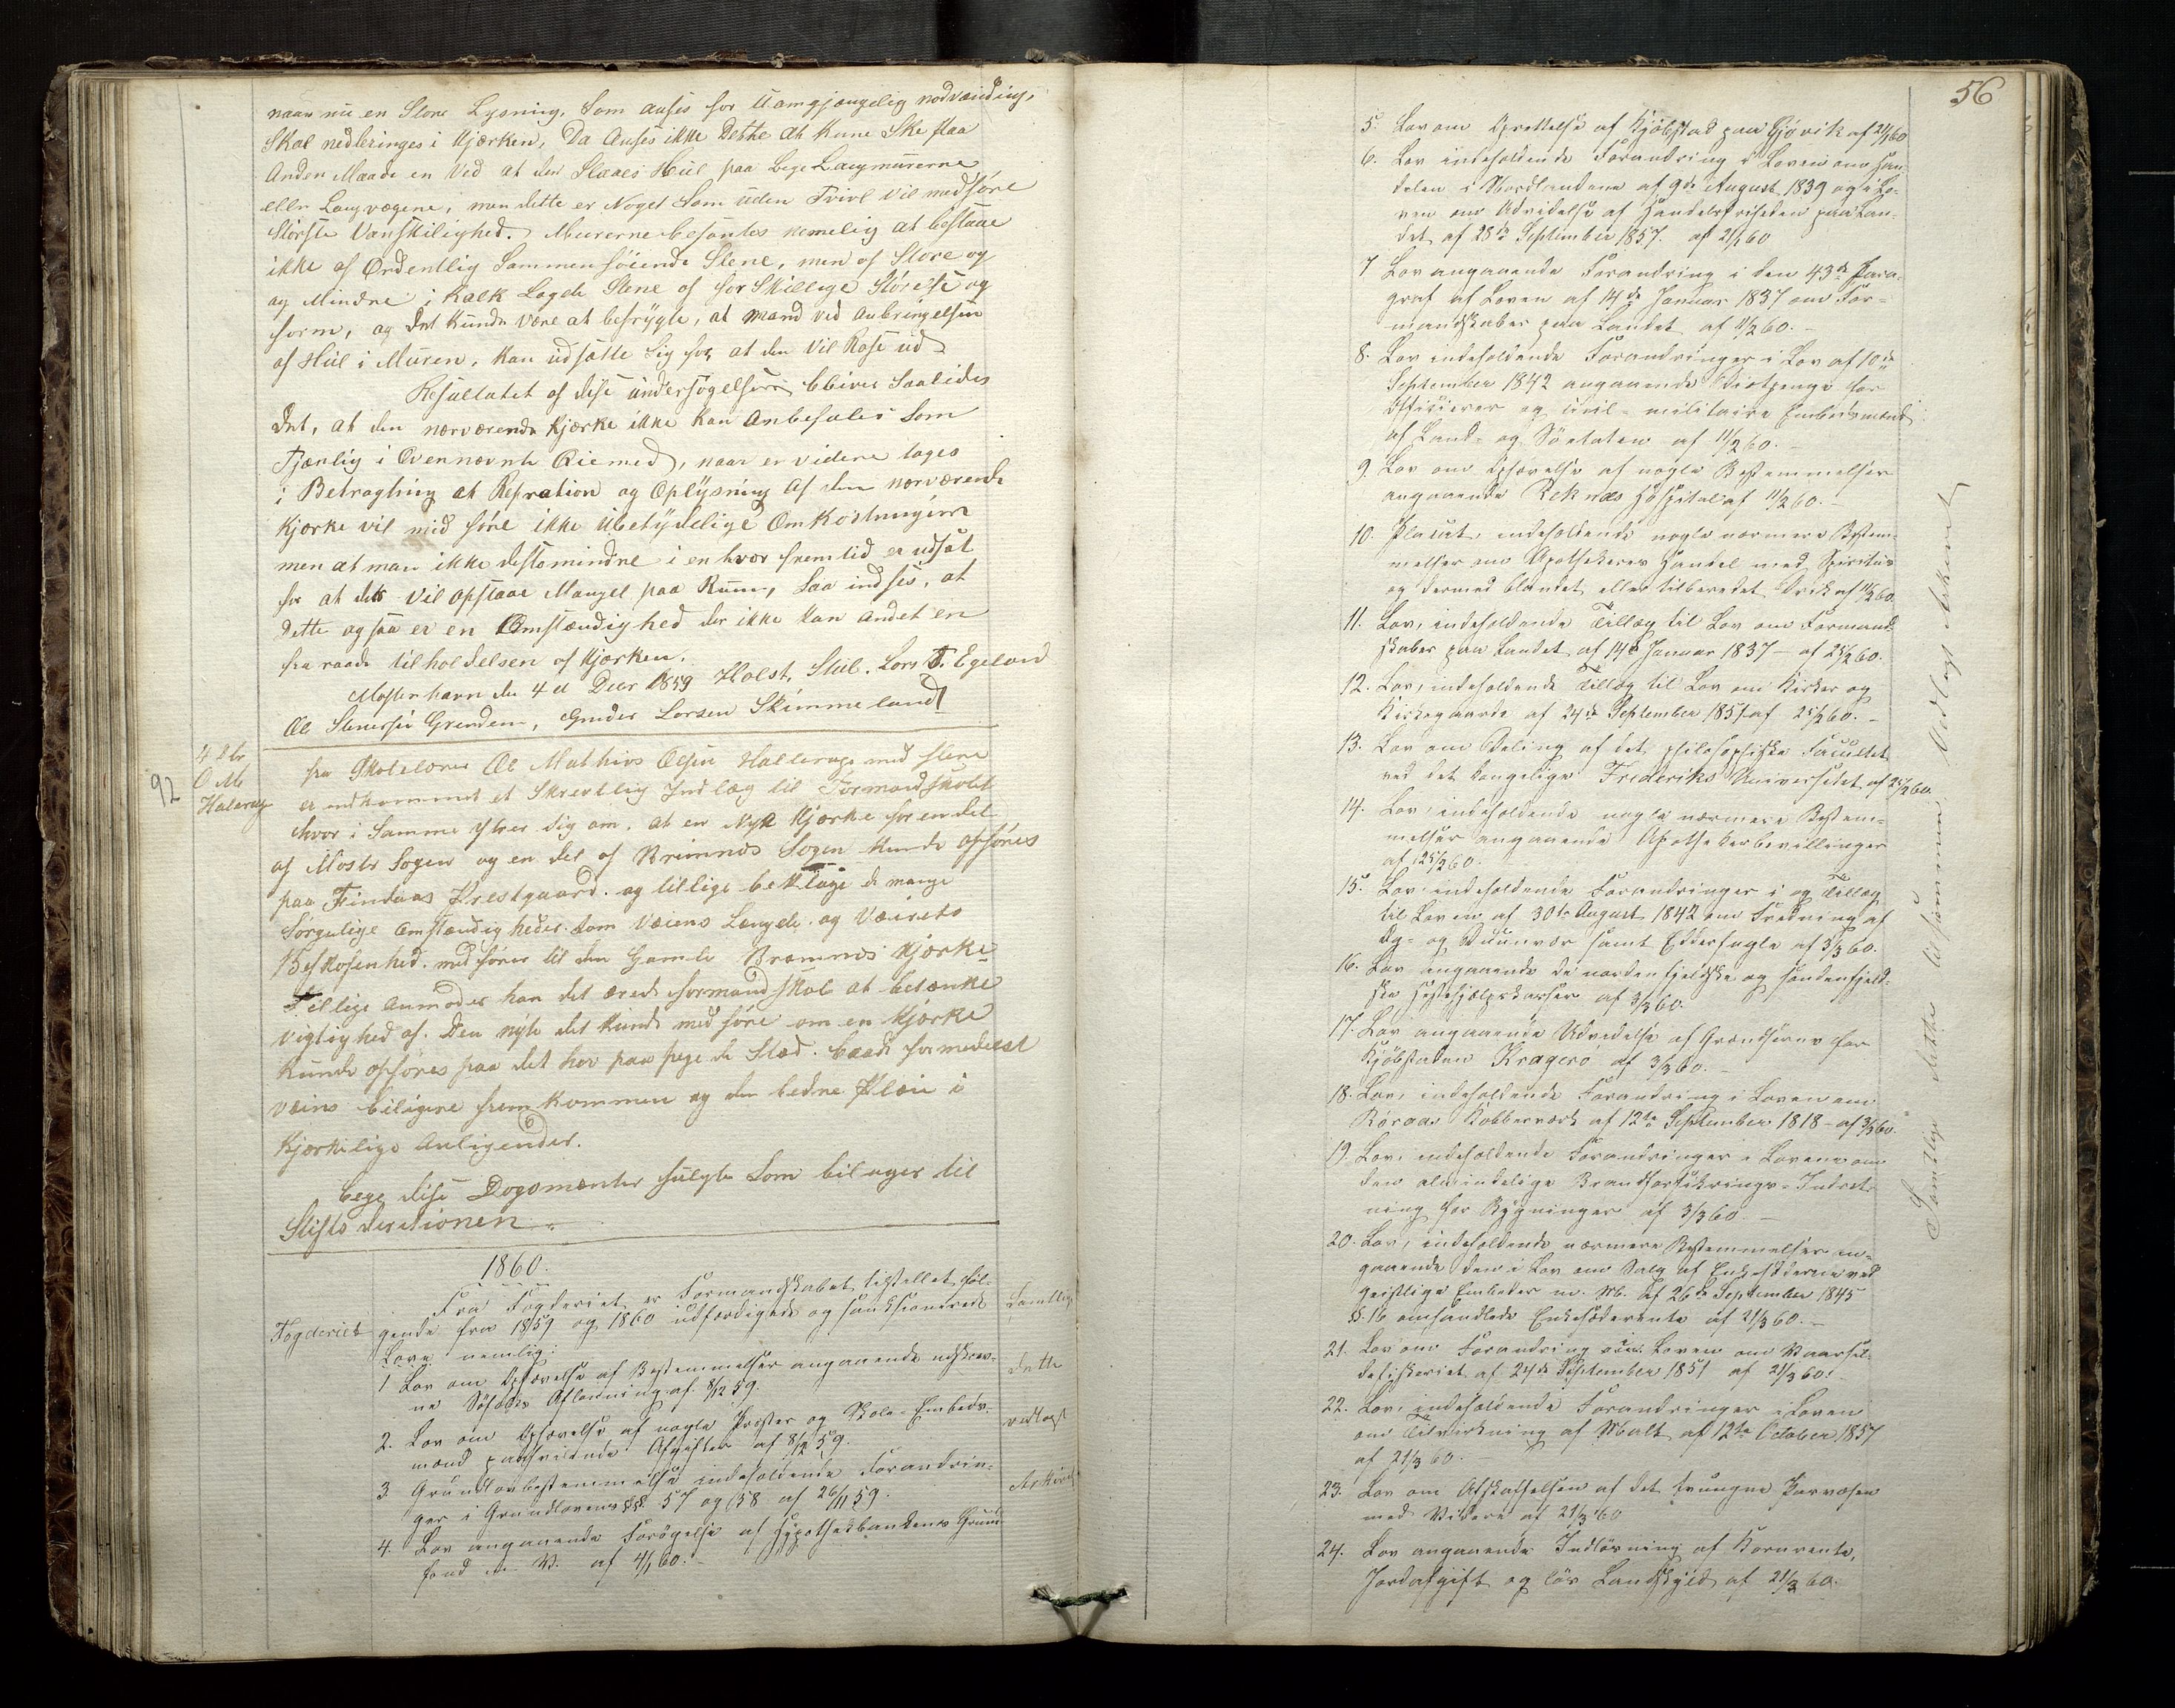 naar nu en Store Lysning, Som anses for Uomgjængelig nodvændig,
Skal nedbringes i Kjærken, Da Anses ikke Dette at kune Ske paa
Anden Maade en Ved at der Slaaes Hul paa bege Langmurerne
eller Langvægene, men dette er Noget Som uden Tvivl Vil medføre
Største Vanskilighed. Murerne befantes nemelig at bestaae
ikke af Ordentlig Sammenføiende Stene, men af Store og
og Mindre i Kalk Lagde Stene af forSkillige Størelse og
form, og det kunde være at befrygte, at Mand ved Anbringelsen
af Hul i Muren, kan udsætte Sig for at den Vil Rase ud
Resultatet af dise undersøgelser bliver Saaledes
det, at den nærværende Kjærke ikke kan Anbefales Som
Tjænlig i Ovennævnte Øiemed, naar en videre tages
i Betragtning at Repration og Oplysning af den nærværende
Kjærke vil med føre ikke Ubetydelige Omkostninger
men at man ikke destomindre i en hver fremtid er udsat
for at dets Vil opstaae Mangel paa Rum, Saa indses, at
dette ogsaa er en Omstændighed der ikke kan andet en
fra raade tilholdelsen af Kjærken.
Mosterhavn den 4 d Decr 1859 Holst, Stub. Lars T. Egeland
Ol Stenersen Grendem, Gunder Larsen Skimmeland
92
4 Dbr
O M
Halerag
fra Skolelærer Ol Mathias Olsen Hallerage med flere
er indkommet et Skrevtlig Indlæg til Formandskabet
hvor i Samme ytrer Sig om, at en Nye Kjærke for en del
af Moster Sogen og en del af Brimnes Sogen kunde opføres
paa Findaas Prestgaard. og tillige beklage de mange
Sørgelige Omstændigheder. Som Væiens Længde og Væirets
Beskafenhed. medfører til den Gamle Bræmnes Kjærke
Tillige anmoder han det ærede formandskab at betænke
Vigtighed af. Den nyte det kunde medføre om en Kjærke
kunde opføres paa det her paa pege de Stæd. baade formedelst
væins biligere fremkommen og den bedre Plæie i
Kjærkelige Anligender.
bege dise Dogomænter fulgte Som bilager til
Stifts derectionen.
1860.
Fogderiet
Fra Fogderiet er Formandskabet tilstellet føl-
gende fra 1859 og 1860 udfærdigede og sanksionerede
Love nemlig:
1 Lov om Ophævelse af Bestemmelser angaaende udskrev-
ne Søfolks Aflønning af 8/12 59.
2. Lov om Ophævelse af nogle Prester og Skole-Embeds-
mænd paahvilende Afgifter af 8/12 59.
3 Grundlovbestemmelse indeholdende Forandrin-
ger i Grundlovens §§ 57 og 58 af 26/11 59.
4. Lov angaaende Forøgelse af Hypothekbankens Grund
fond m. V. af 4/1 60.
Samtlige
dette
vedlagt
Arkivet
56
5. Lov om Oprettelse af Kjøbstad paa Gjøvik af 21/1 60
6. Lov indeholdende Forandring i Loven om Han-
delen i Nordlandene af 9de August 1839 og i Lo-
ven om Udvidelse af Handelsfriheden paa Lan-
det af 28de September 1857. af 21/1 60
7 Lov angaaende Forandring i den 43de Para-
graf af Loven af 14de Januar 1837 om For-
mandskaber paa Landet af 11/2 60.
8. Lov indeholdende Forandringer i Lov af 10de
September 1842 angaaende Diætpenge for
Officierer og civil-militaire Embedsmænd
af Land- og Søetaten af 11/2 60.
9. Lov om Ophævelse af nogle Bestemmelser
angaaende Reknæs Hospital af 11/2 60.
10. Placat, indeholdende nogle nærmere Bestem-
melser om Apothekeres Handel med Spiritus
og dermed blandet eller tilberedet Drik af 11/2 60.
11. Lov, indeholdende Tillæg til Lov om Formand-
skaber paa Landet af 14de Januar 1837 - af 25/2 60.
12. Lov, indeholdende Tillæg til Lov om Kirker og
Kirkegaarde af 24de September 1851 af 25/2 60.
13. Lov om Deling af det philosophiske Facultet
ved det kongelige Frederiks Universitet af 25/2 60.
14. Lov, indeholdende nogle nærmere Bestem-
melser angaaende Apothekerbevillinger
af 25/2 60.
15. Lov indeholdende Forandringer i og Tillæg
til Loven af 30te August 1842 om Fredning af
Æg- og Duunvær samt Edderfugle af 3/3 60.
16. Lov angaaende de nordenfjeldske og søndenfjeld-
ske Hestehjælpskasser af 3/3 60.
17. Lov angaaende Udvidelse af Grændserne for
Kjøbstaden Kragerø af 3/3 60.
18. Lov, indeholdende Forandring i Loven om
Røraas Kobberværk af 12te September 1818 - af 3/3 60.
19. Lov, indeholdende Forandringer i Lovene om
den almindelige Brandforsikrings-Indret-
ning for Bygninger af 3/3 60.
20. Lov, indeholdende nærmere Bestemmelser an-
gaaende den i Lov om Salg af Enkesæderne ved
geistlige Embeder m. M. af 26de September 1845
§ 16 omhandlede Enkesæderente af 21/3 60.
21. Lov om Forandring i Loven om Vaarsil-
defiskeriet af 24de September 1851 af 21/3 60.
22. Lov, indeholdende Forandringer i Loven
om Tilvirkning af Malt af 12te October 1857
af 21/3 60.
23. Lov om Afskaffelsen af det tvungne Pasvæsen
med Videre af 21/3 60
24. Lov angaaende Indløsning af Kornrente,
Jordafgift og løs Landskyld af 21/3 60.
Samtlige dette til sammen Vedlagt Arkivet